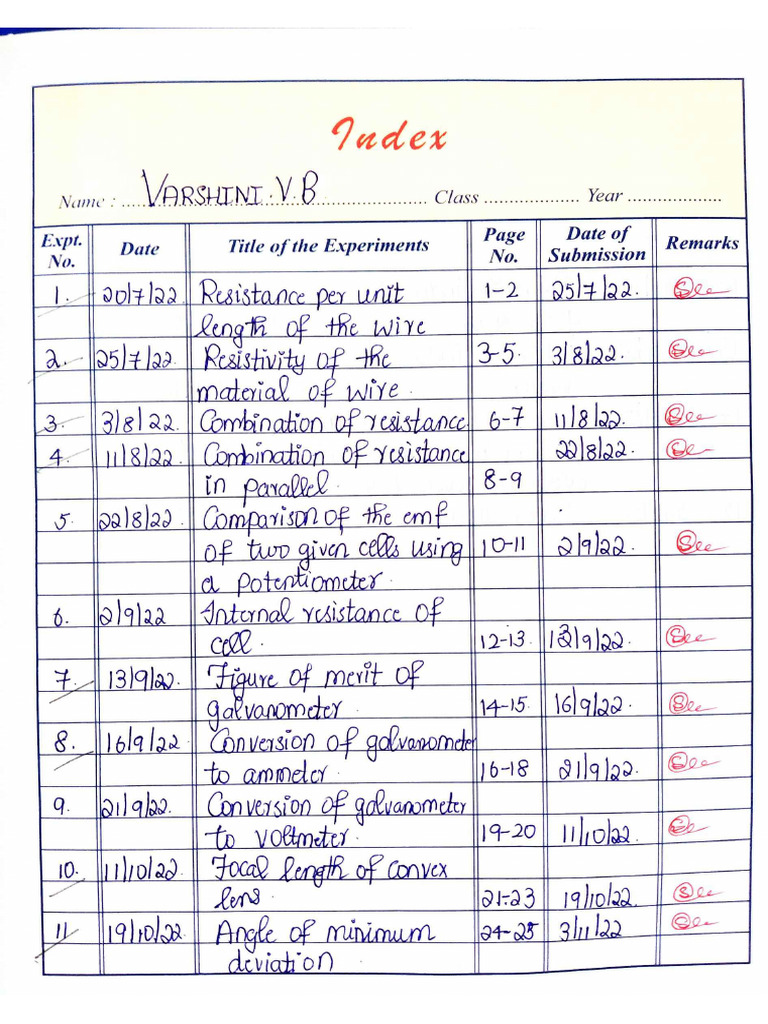 Index
Name : VARSHINI. V. B Class Year
Expt. No. Date Title of the Experiments Page No. Date of Submission Remarks
1. 20/7/22 Resistance per unit 1-2 25/7/22. See
length of the wire
2. 25/7/22. Resistivity of the 3-5. 3/8/22. See
material of wire.
3. 3/8/22. Combination of resistance 6-7 11/8/22. See
4. 11/8/22. Combination of resistance 22/8/22. See
in parallel. 8-9
5. 22/8/22. Comparison of the emf
of two given cells using 10-11 2/9/22. See
a potentiometer.
6. 2/9/22 Internal resistance of
cell. 12-13. 13/9/22. See
7. 13/9/22. Figure of merit of
galvanometer. 14-15. 16/9/22. See
8. 16/9/22 Conversion of galvanometer
to ammeter. 16-18 21/9/22. See
9. 21/9/22. Conversion of galvanometer
to voltmeter. 19-20 11/10/22. See
10. 11/10/22. Focal length of convex
lens 21-23 19/10/22. See
11 19/10/22. Angle of minimum 24-25 3/11/22 See
deviation